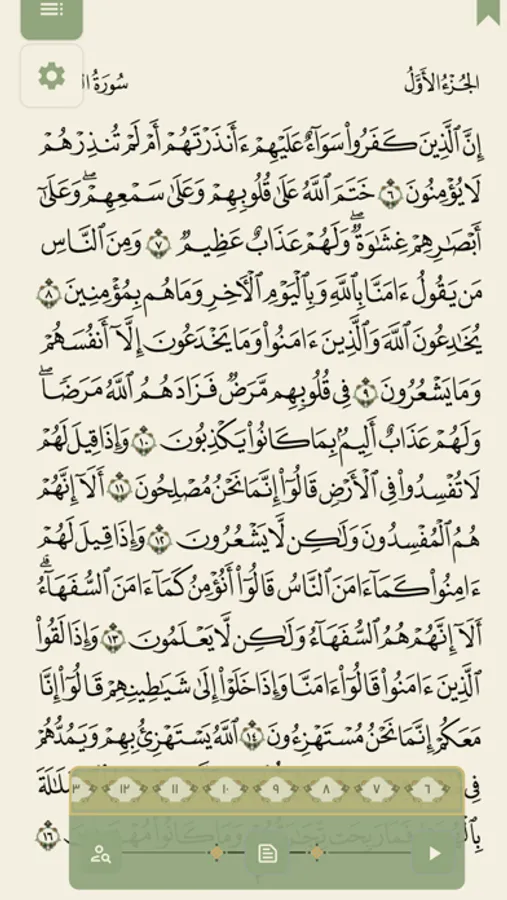 الجُزْءُ الأَوَّلُ
سُورَةُ
إِنَّ ٱلَّذِينَ كَفَرُوا۟ سَوَآءٌ عَلَيْهِمْ ءَأَنذَرْتَهُمْ أَمْ لَمْ تُنذِرْهُمْ
لَا يُؤْمِنُونَ ٦ خَتَمَ ٱللَّهُ عَلَىٰ قُلُوبِهِمْ وَعَلَىٰ سَمْعِهِمْ ۖ وَعَلَىٰٓ
أَبْصَـٰرِهِمْ غِشَـٰوَةٌ ۖ وَلَهُمْ عَذَابٌ عَظِيمٌ ٧ وَمِنَ ٱلنَّاسِ
مَن يَقُولُ ءَامَنَّا بِٱللَّهِ وَبِٱلْيَوْمِ ٱلْـَٔاخِرِ وَمَا هُم بِمُؤْمِنِينَ ٨
يُخَـٰدِعُونَ ٱللَّهَ وَٱلَّذِينَ ءَامَنُوا۟ وَمَا يَخْدَعُونَ إِلَّآ أَنفُسَهُمْ
وَمَا يَشْعُرُونَ ٩ فِى قُلُوبِهِم مَّرَضٌ فَزَادَهُمُ ٱللَّهُ مَرَضًا ۖ
وَلَهُمْ عَذَابٌ أَلِيمٌۢ بِمَا كَانُوا۟ يَكْذِبُونَ ١٠ وَإِذَا قِيلَ لَهُمْ
لَا تُفْسِدُوا۟ فِى ٱلْأَرْضِ قَالُوٓا۟ إِنَّمَا نَحْنُ مُصْلِحُونَ ١١ أَلَآ إِنَّهُمْ
هُمُ ٱلْمُفْسِدُونَ وَلَـٰكِن لَّا يَشْعُرُونَ ١٢ وَإِذَا قِيلَ لَهُمْ
ءَامِنُوا۟ كَمَآ ءَامَنَ ٱلنَّاسُ قَالُوٓا۟ أَنُؤْمِنُ كَمَآ ءَامَنَ ٱلسُّفَهَآءُ ۗ
أَلَآ إِنَّهُمْ هُمُ ٱلسُّفَهَآءُ وَلَـٰكِن لَّا يَعْلَمُونَ ١٣ وَإِذَا لَقُوا۟
ٱلَّذِينَ ءَامَنُوا۟ قَالُوٓا۟ ءَامَنَّا وَإِذَا خَلَوْا۟ إِلَىٰ شَيَـٰطِينِهِمْ قَالُوٓا۟ إِنَّا
مَعَكُمْ إِنَّمَا نَحْنُ مُسْتَهْزِءُونَ ١٤ ٱللَّهُ يَسْتَهْزِئُ بِهِمْ وَيَمُدُّهُمْ
فِى
٦ ٧ ٨ ٩ ١٠ ١١ ١٢ ٣
فَمَا رَبِحَت تِّجَـٰرَتُهُمْ وَمَا كَانُوا۟ مُهْتَدِينَ ١٦